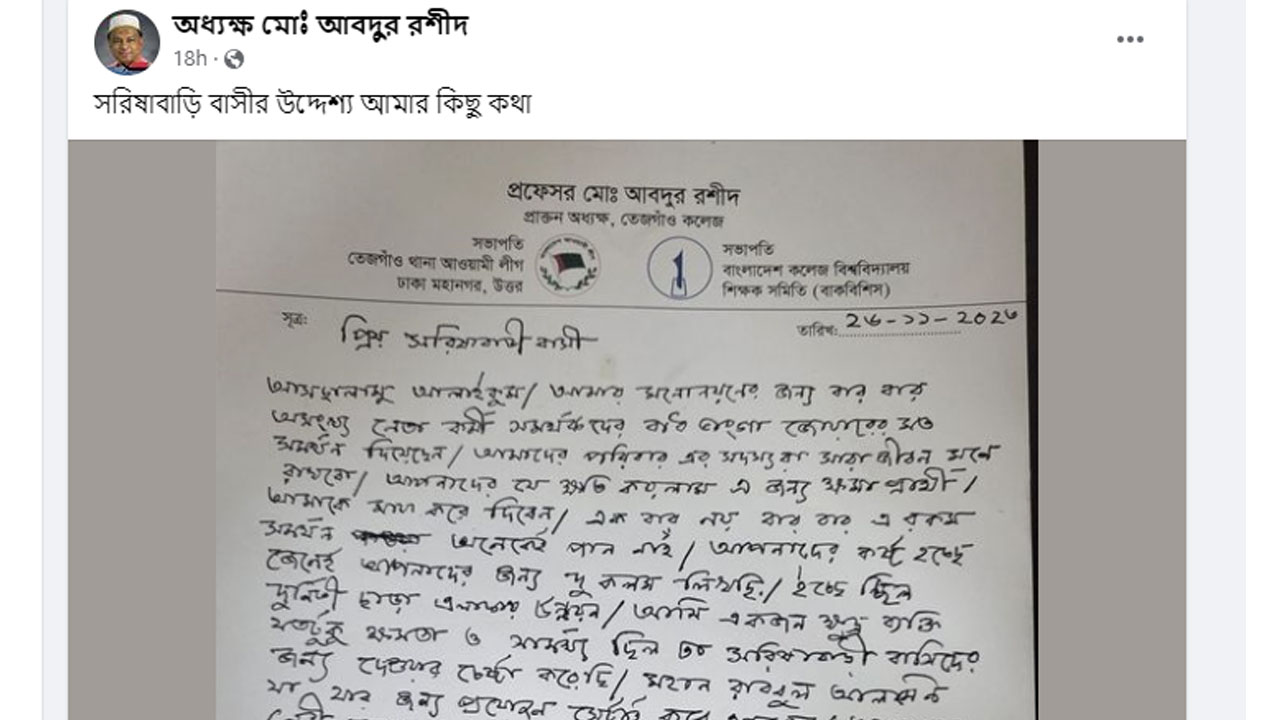 অধ্যক্ষ মোঃ আবদুর রশীদ
18h ·
সরিষাবাড়ি বাসীর উদ্দেশ্য আমার কিছু কথা
প্রফেসর মোঃ আবদুর রশীদ
প্রাক্তন অধ্যক্ষ, তেজগাঁও কলেজ
সভাপতি
তেজগাঁও থানা আওয়ামী লীগ
ঢাকা মহানগর, উত্তর
সভাপতি
বাংলাদেশ কলেজ বিশ্ববিদ্যালয়
শিক্ষক সমিতি (বাকবিশিস)
সূত্র:
তারিখ: ২৬-১১-২০২৩
প্রিয় সরিষাবাড়ী বাসী
আসসালামু আলাইকুম/ আমার মনোনয়নের জন্য বার বার
অসংখ্য নেতা কর্মী সমর্থকদের বাধ ভাংগা জোয়ারের মত
সমর্থন দিয়েছেন/ আমাদের পরিবার এর সদস্যরা সারা জীবন মনে
রাখবো/ আপনাদের যে ক্ষতি করলাম এ জন্য ক্ষমা প্রার্থী/
আমাকে মাফ করে দিবেন/ এক বার নয় বার বার এ রকম
সমর্থন অনেকেই পান নাই/ আপনাদের কষ্ট হচ্ছে
জেনেই আপনাদের জন্য দু কলম লিখছি/ ইচ্ছে ছিল
দুর্নিতী ছাড়া এলাকার উন্নয়ন/ আমি একজন ক্ষুদ্র ব্যক্তি
যতটুকু ক্ষমতা ও সামর্থ্য ছিল তা সরিষাবাড়ী বাসিদের
জন্য দেওয়ার চেষ্টা করেছি/ মহান রাব্বুল আলামিন
যা যার জন্য প্রয়োজন